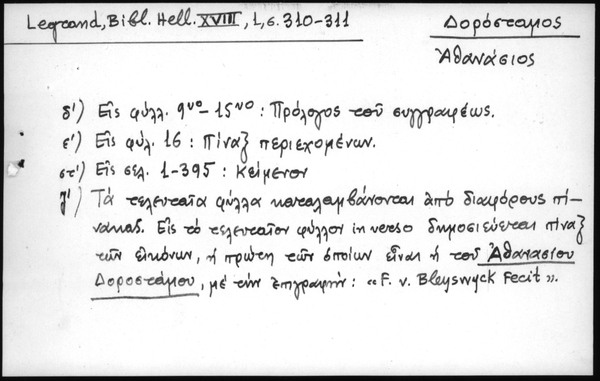 Legrand, Bibl. Hell. XVIII, 1, σ. 310-311
Δορόσταμος
Ἀθανάσιος
δ') Εἰς φύλλ. 9νο-15νο : Πρόλογος τοῦ συγγραφέως.
ε') Εἰς φύλ. 16 : Πίναξ περιεχομένων.
στ') Εἰς σελ. 1-395 : Κείμενον
ζ') Τὰ τελευταῖα φύλλα καταλαμβάνονται ἀπὸ διαφόρους πί-
νακας. Εἰς τὸ τελευταῖον φύλλον in verso δημοσιεύεται πίναξ
τῶν εἰκόνων, ἡ πρώτη τῶν ὁποίων εἶναι ἡ τοῦ Ἀθανασίου
Δοροστάμου, μὲ τὴν ἐπιγραφήν : « F. v. Bleyswyck Fecit ».